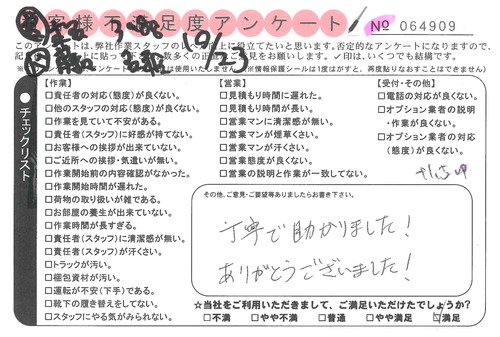 お客様不満足度アンケート
No 064909
10/23
このアンケートは、弊社作業スタッフのレベル向上に役立てたいと思います。否定的なアンケートになりますので、
お願いします。✓印は、いくつでも結構です。
使用いたしません。)(※情報保護シールは1度はがすと、再度貼りなおすことはできません)
チェックリスト
【作業】
□責任者の対応(態度)が良くない。
□他のスタッフの対応(態度)が良くない。
□作業を見ていて不安がある。
□責任者(スタッフ)に好感が持てない。
□お客様への挨拶が出来ていない。
□ご近所への挨拶・気遣いが無い。
□作業開始前の内容確認がなかった。
□作業開始時間が遅れた。
□荷物の取り扱いが雑である。
□お部屋の養生が出来ていない。
□作業時間が長すぎる。
□責任者(スタッフ)に清潔感が無い。
□責任者(スタッフ)が汗くさい。
□トラックが汚い。
□梱包資材が汚い。
□運転が不安(下手)である。
□靴下の履き替えをしてない。
□スタッフにやる気がみられない。
【営業】
□見積もり時間に遅れた。
□見積もり時間が長い。
□営業マンに清潔感が無い。
□営業マンが煙草くさい。
□営業マンが汗くさい。
□営業態度が良くない。
□営業の説明と作業が一致してない。
【受付・その他】
□電話の対応が良くない。
□オプション業者の説明
・作業が良くない。
□オプション業者の対応
(態度)が良くない。
その他、ご意見・ご要望等ありましたらお書き下さい。
丁寧で助かりました!
ありがとうございました!
☆当社をご利用いただきまして、ご満足いただけたでしょうか?
□不満 □やや不満 □普通 □やや満足 ☑満足